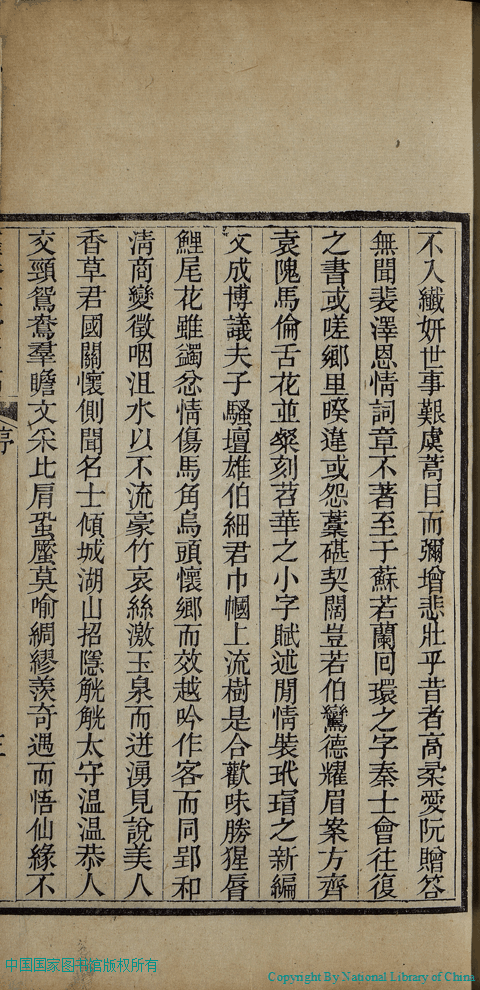 不入纖妍世事艱虞蒿目而彌增悲壯乎昔者高柔愛阮贈答
無聞裴澤恩情詞章不著至于蘇若蘭回環之字秦士會往復
之書或嗟鄉里暌違或怨藁碪契闊豈若伯鸞德耀眉案方齊
袁隗馬倫舌花並粲刻苕華之小字賦述閒情裝玳瑁之新編
文成博議夫子騷壇雄伯細君巾幗上流樹是合歡味勝猩脣
鯉尾花雖蠲忿情傷馬角烏頭懷鄉而效越吟作客而同郢和
清商變徵咽沮水以不流豪竹哀絲激玉泉而迸湧見說美人
香草君國關懷側聞名士傾城湖山招隱觥觥太守温温恭人
交頸鴛鴦羣瞻文采比肩蛩蟨莫喻綢繆羨奇遇而悟仙緣不
序
三
中国国家图书馆版权所有
Copyright By National Library of China